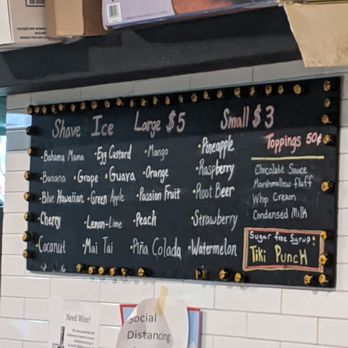 Shave Ice Large $5 Small $3
• Bahama Mama • Egg Custard • Mango • Pineapple
• Banana • Grape • Guava • Orange • Raspberry
• Blue Hawaiian • Green Apple • Passion Fruit • Root Beer
• Cherry • Lemon-Lime • Peach • Strawberry
• Coconut • Mai Tai • Piña Colada • Watermelon
Toppings 50¢
Chocolate Sauce
Marshmallow fluff
Whip Cream
Condensed Milk
Sugar free Syrup!
Tiki Punch
Need Wine?
Social
Distancing